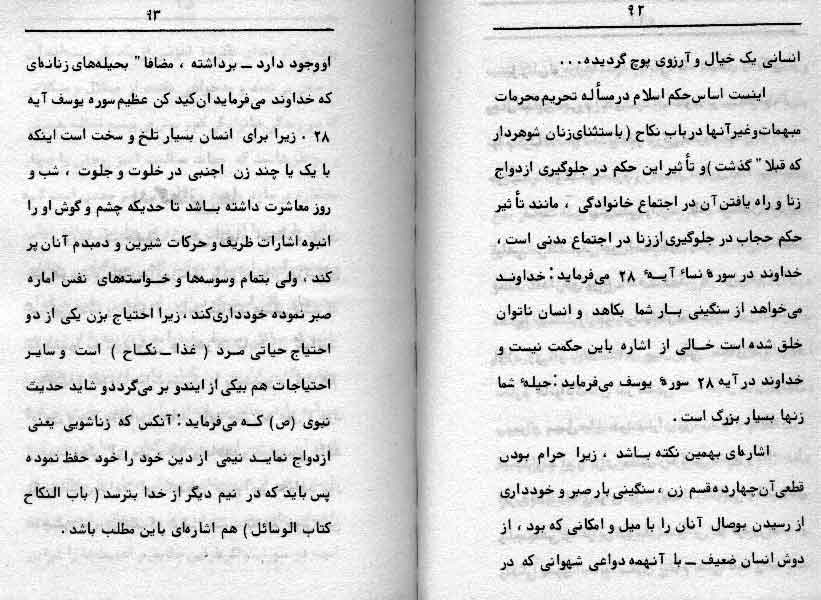 ۹۲
انسانی یک خیال و آرزوی پوچ گردیده...
اینست اساس حکم اسلام در مسأله تحریم محرمات
مبهمات وغیر آنها در باب نکاح (باستثنای زنان شوهردار
که قبلا" گذشت) و تأثیر این حکم در جلوگیری ازدواج
زنا و راه یافتن آن در اجتماع خانوادگی ، مانند تأثیر
حکم حجاب در جلوگیری اززنا در اجتماع مدنی است ،
خداوند در سورهٔ نساء آیهٔ ۲۸ می‌فرماید : خداوند
می‌خواهد از سنگینی بار شما بکاهد و انسان ناتوان
خلق شده است خالی از اشاره باین حکمت نیست و
خداوند در آیه ۲۸ سورهٔ یوسف می‌فرماید : حیلهٔ شما
زنها بسیار بزرگ است .
اشاره‌ای بهمین نکته باشد ، زیرا حرام بودن
قطعی آن چهارده قسم زن ، سنگینی بار صبر و خودداری
از رسیدن بوصال آنان را با میل و امکانی که بود ، از
دوش انسان ضعیف ــ با آنهمه دواعی شهوانی که در
۹۳
او وجود دارد ــ برداشته ، مضافا" بحیله‌های زنانه‌ای
که خداوند می‌فرماید ان کید کن عظیم سوره یوسف آیه
۲۸ . زیرا برای انسان بسیار تلخ و سخت است اینکه
با یک یا چند زن اجنبی در خلوت و جلوت ، شب و
روز معاشرت داشته باشد تا حدیکه چشم و گوش او را
انبوه اشارات ظریف و حرکات شیرین و دمبدم آنان پر
کند ، ولی بتمام وسوسه‌ها و خواسته‌های نفس اماره
صبر نموده خودداری کند ، زیرا احتیاج بزن یکی از دو
احتیاج حیاتی مرد ( غذا ــ نکاح ) است و سایر
احتیاجات هم بیکی از ایندو بر می‌گردد و شاید حدیث
نبوی (ص) که می‌فرماید : آنکس که زناشویی یعنی
ازدواج نماید نیمی از دین خود را خود حفظ نموده
پس باید که در نیم دیگر از خدا بترسد ( باب النکاح
کتاب الوسائل ) هم اشاره‌ای باین مطلب باشد .